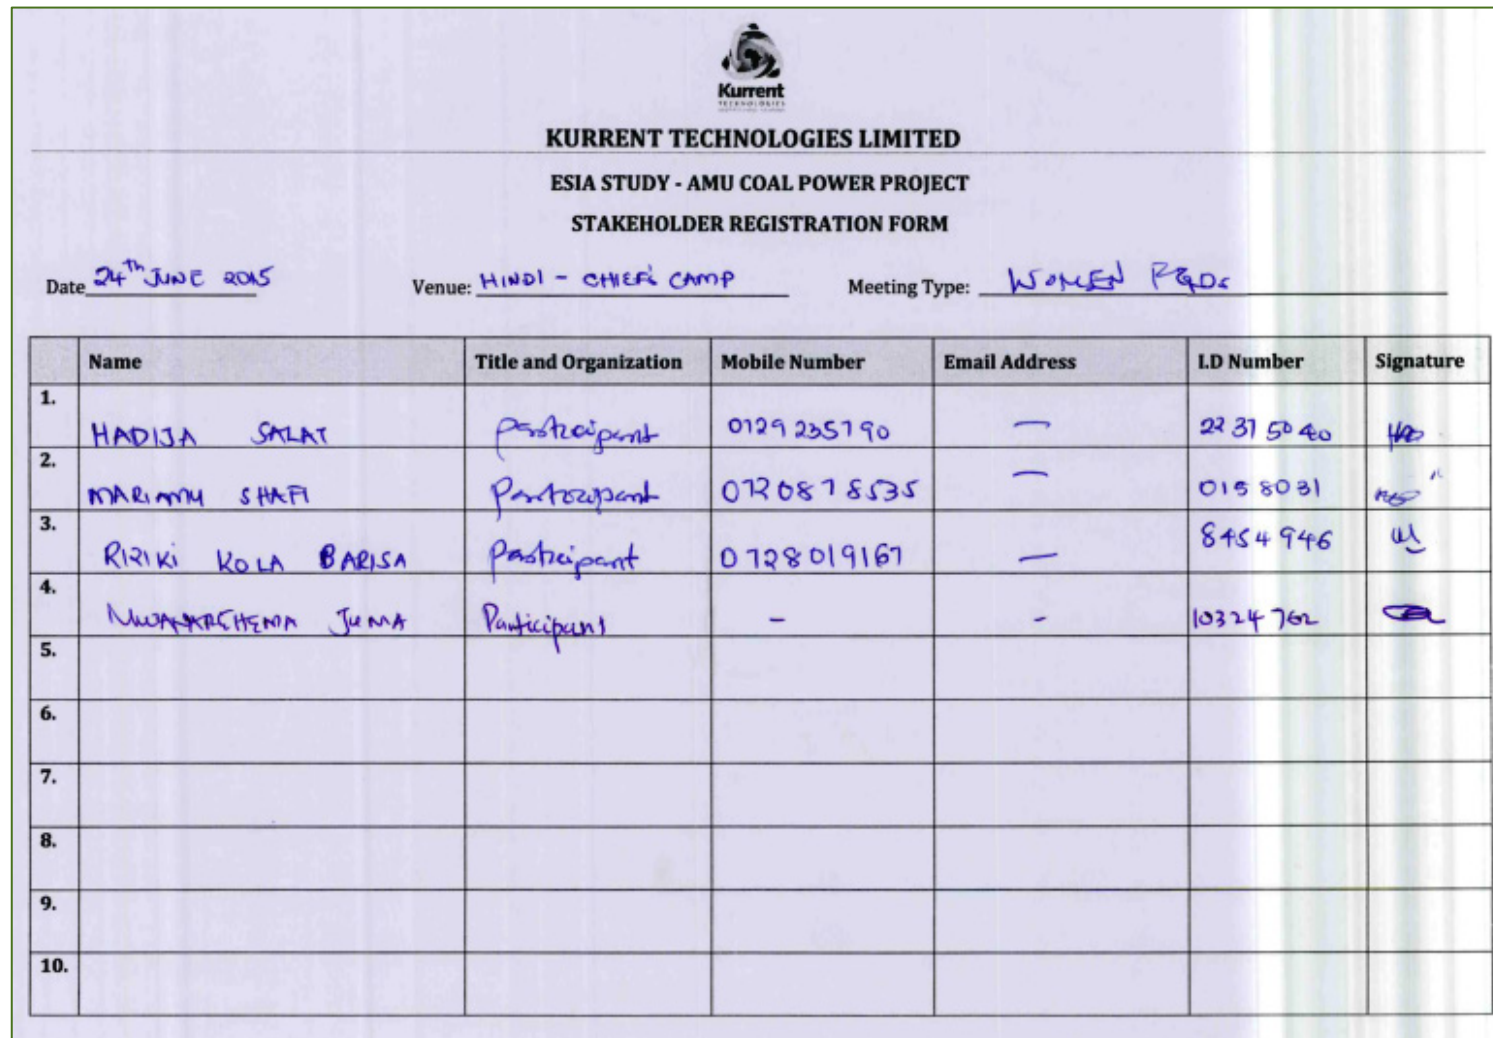 Kurrent
TECHNOLOGIES
KURRENT TECHNOLOGIES LIMITED
ESIA STUDY - AMU COAL POWER PROJECT
STAKEHOLDER REGISTRATION FORM
Date 24th JUNE 2015 Venue: HINDI - CHIEF'S CAMP Meeting Type: WOMEN FGDs
Name Title and Organization Mobile Number Email Address I.D Number Signature
1. HADIJA SALAT Participant 0729235790 — 22375040
2. MARIAMU SHAFI Participant 0720878535 — 0158031
3. RIZIKI KOLA BARISA Participant 0728019167 — 8454946
4. MWANAREHEMA JUMA Participant - - 10324762
5.
6.
7.
8.
9.
10.